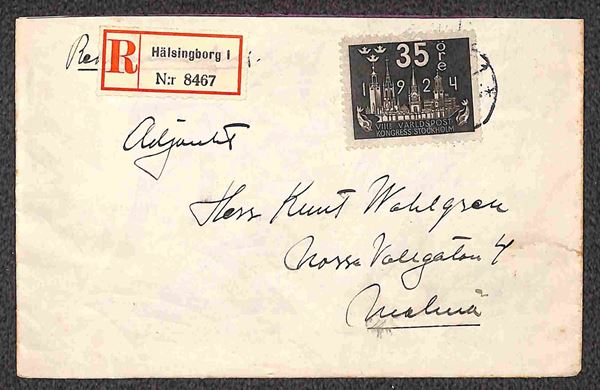 R
Hälsingborg 1
N:r 8467
35 öre
1924
VIII VÄRLDSPOST
KONGRESS STOCKHOLM
Adjunkt
Herr Knut Wahlgren
Norra Vallgatan 4
Malmö